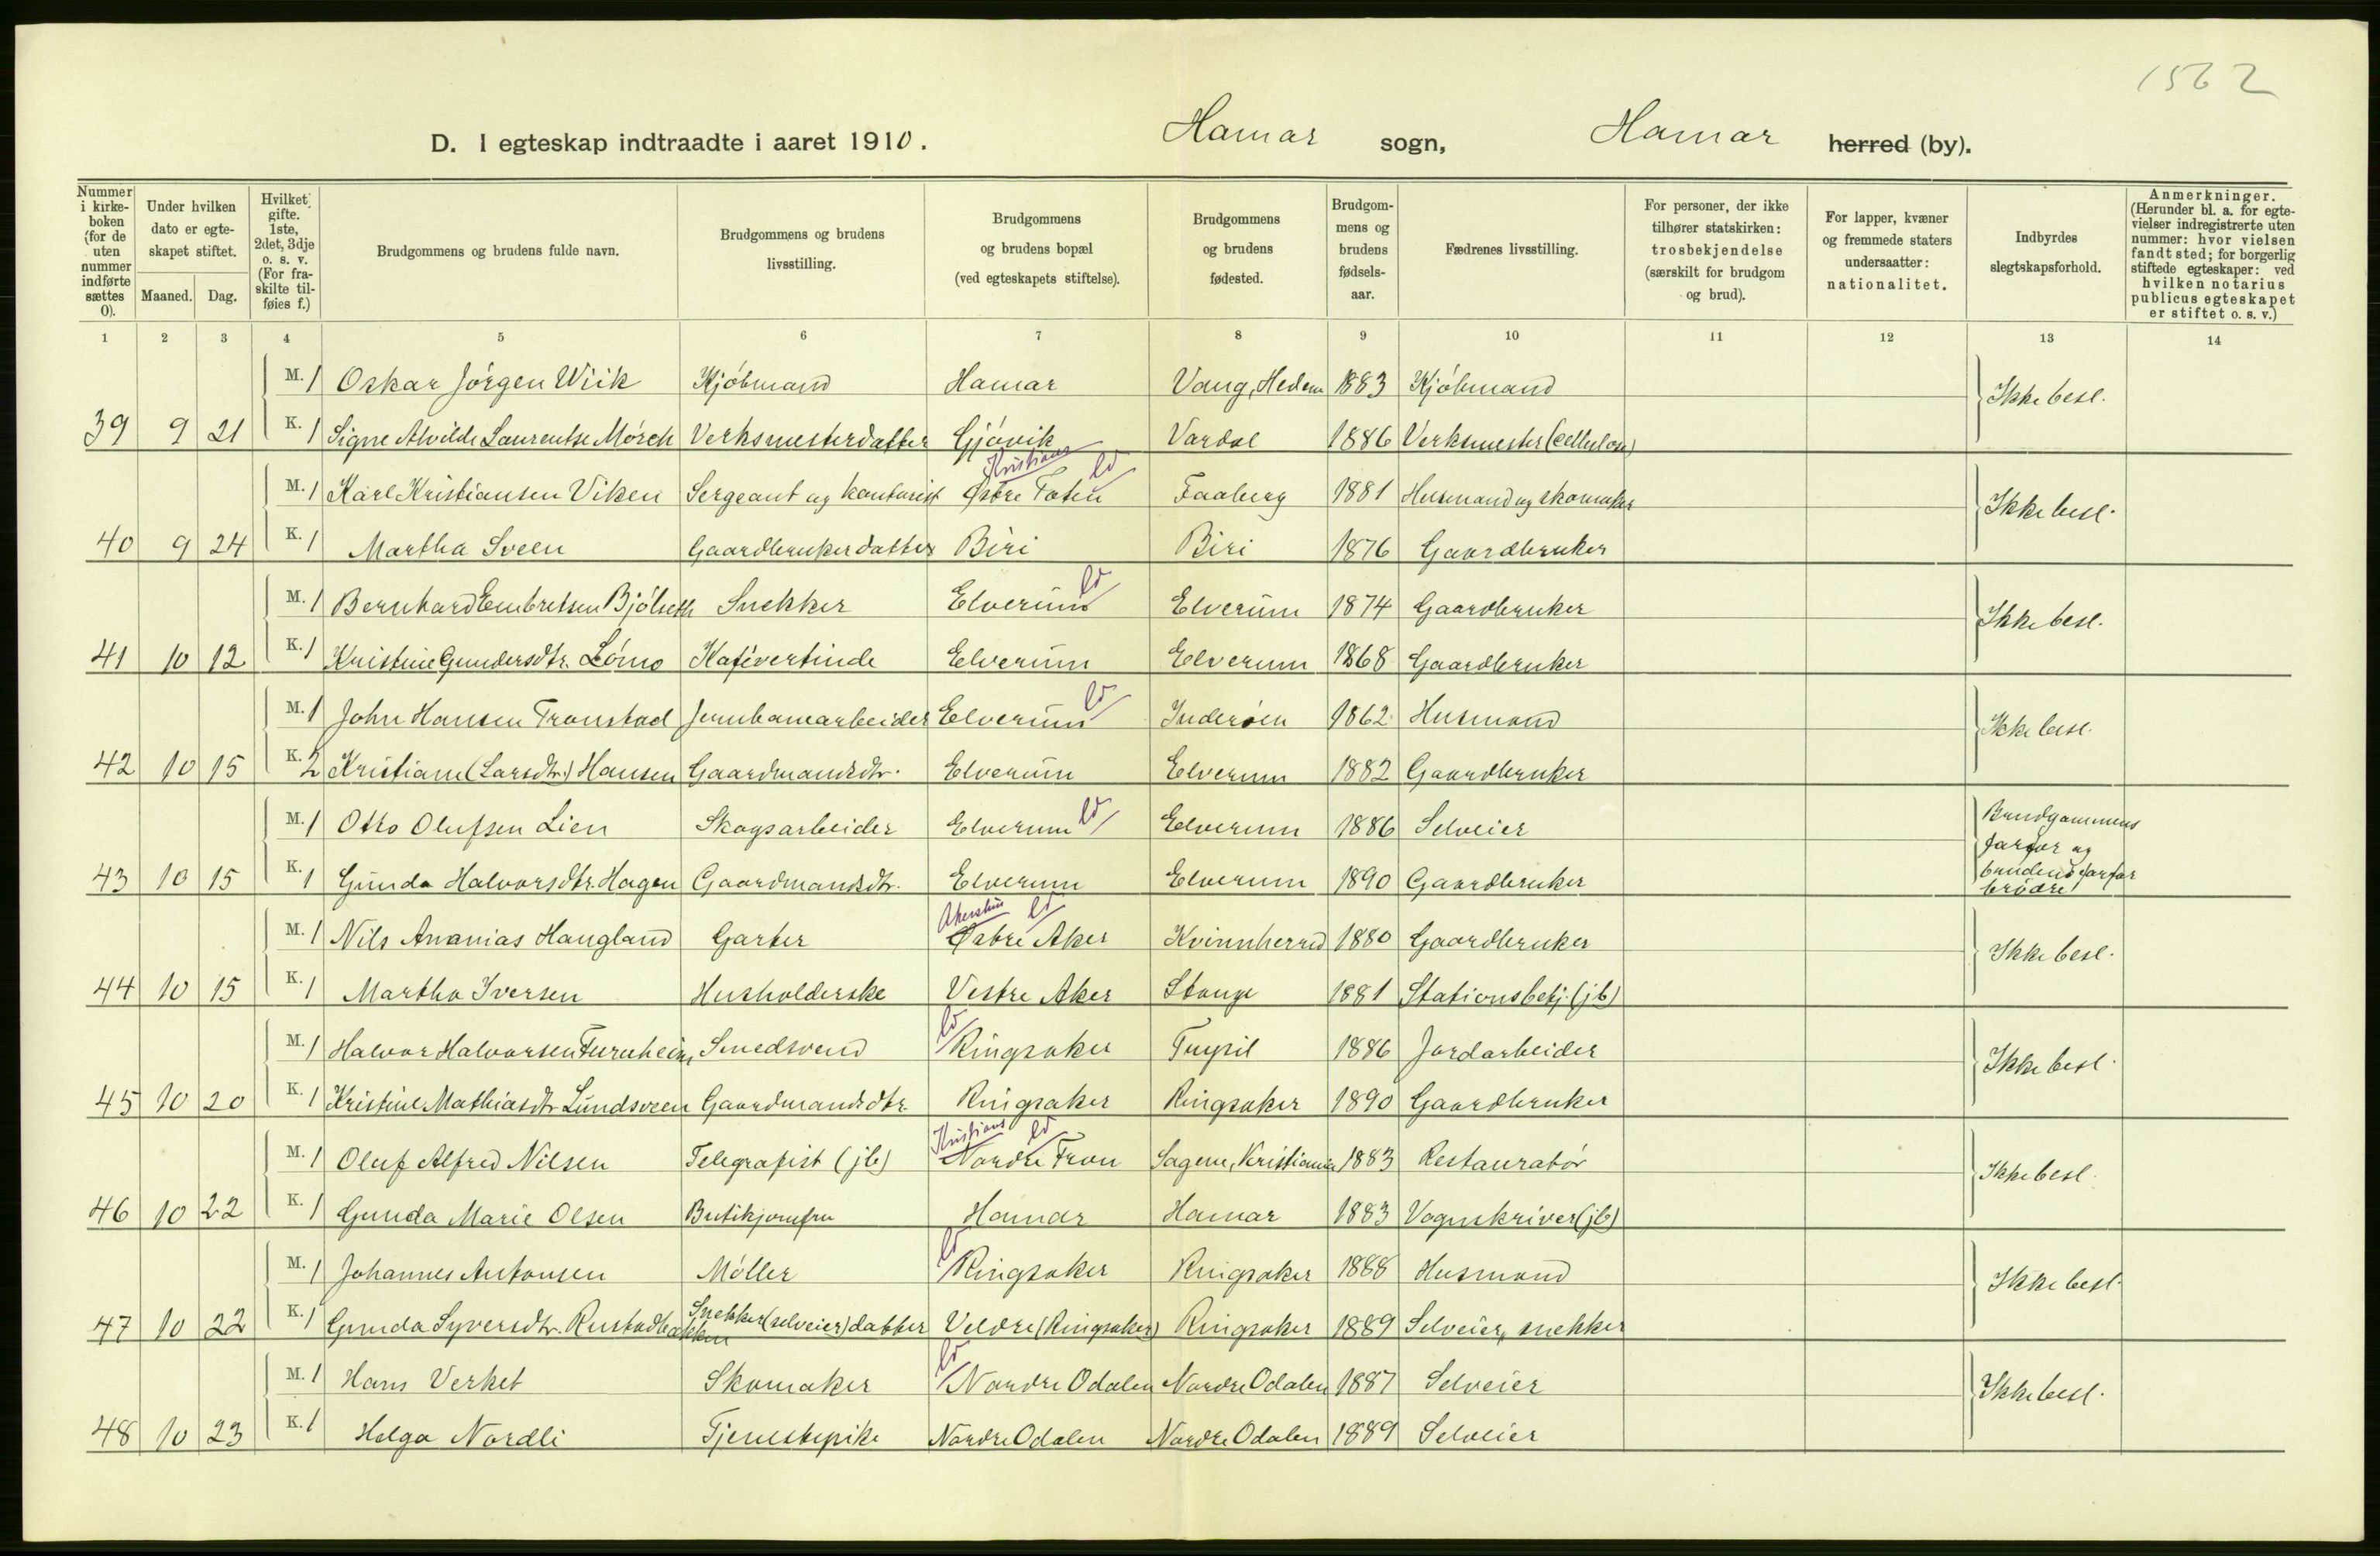 1562
D. I egteskap indtraadte i aaret 1910. Hamar sogn, Hamar herred (by).
Nummer i kirke-boken (for de uten nummer indførte sættes 0).
Under hvilken dato er egte-skapet stiftet.
Maaned. Dag.
Hvilket gifte. 1ste, 2det, 3dje o. s. v. (For fra-skilte til-føies f.)
Brudgommens og brudens fulde navn.
Brudgommens og brudens livsstilling.
Brudgommens og brudens bopæl (ved egteskapets stiftelse).
Brudgommens og brudens fødested.
Brudgom-mens og brudens fødsels-aar.
Fædrenes livsstilling.
For personer, der ikke tilhører statskirken: trosbekjendelse (særskilt for brudgom og brud).
For lapper, kvæner og fremmede staters undersaatter: nationalitet.
Indbyrdes slegtskapsforhold.
Anmerkninger. (Herunder bl. a. for egte-vielser indregistrerte uten nummer: hvor vielsen fandt sted; for borgerlig stiftede egteskaper: ved hvilken notarius publicus egteskapet er stiftet o. s. v.)
1 2 3 4 5 6 7 8 9 10 11 12 13 14
M. 1 Oskar Jörgen Wiik Kjöbmand Hamar Vang, Hedem 1883 Kjöbmand Ikke besl.
39 9 21 K. 1 Signe Alvilde Laurentse Mörch Verksmesterdatter Gjövik Vardal 1886 Verksmester (cellulose)
Kristians ld
M. 1 Karl Kristiansen Viken Sergeant og kontorist Østre Toten Faaberg 1881 Husmand og skomaker Ikke besl.
40 9 24 K. 1 Martha Sveen Gaardbrukerdatter Biri Biri 1876 Gaardbruker
ld
M. 1 Bernhard Embretsen Bjölseth Snekker Elverum Elverum 1874 Gaardbruker Ikke besl.
41 10 12 K. 1 Kristine Gundersdtr. Lömo Kafévertinde Elverum Elverum 1868 Gaardbruker
ld
M. 1 John Hansen Tronstad Jernbanearbeider Elverum Inderøen 1862 Husmand Ikke besl.
42 10 15 K. 2 Kristiane (Larsdtr.) Hansen Gaardmandsdtr. Elverum Elverum 1882 Gaardbruker
ld
M. 1 Otto Olufsen Lien Skogsarbeider Elverum Elverum 1886 Selveier Brudgommens farfar og
43 10 15 K. 1 Gunda Halvorsdtr. Hagen Gaardmandsdtr. Elverum Elverum 1890 Gaardbruker brudens farfar brødre
Akershus ld
M. 1 Nils Ananias Haugland Gartner Østre Aker Kvinnherred 1880 Gaardbruker Ikke besl.
44 10 15 K. 1 Martha Iversen Husholderske Vestre Aker Stange 1881 Stationsbetj. (jb)
ld
M. 1 Halvor Halvorsen Furuheim Smedsvend Ringsaker Trysil 1886 Jordarbeider Ikke besl.
45 10 20 K. 1 Kristine Mathiasdtr Lundsveen Gaardmandsdtr. Ringsaker Ringsaker 1890 Gaardbruker
Kristians ld
M. 1 Oluf Alfred Nilsen Telegrafist (jb) Nordre Fron Sagene, Kristiania 1883 Restauratör Ikke besl.
46 10 22 K. 1 Gunda Marie Olsen Butikjomfru Hamar Hamar 1883 Vognskriver (jb)
ld
M. 1 Johannes Antonsen Möller Ringsaker Ringsaker 1888 Husmand Ikke besl.
47 10 22 K. 1 Gunda Syversdtr. Rustadbakken Snekker (selveier) datter Veldre (Ringsaker) Ringsaker 1889 Selveier, snekker
ld
M. 1 Hans Verket Skomaker Nordre Odalen Nordre Odalen 1887 Selveier Ikke besl.
48 10 23 K. 1 Helga Nordli Tjenestepike Nordre Odalen Nordre Odalen 1889 Selveier